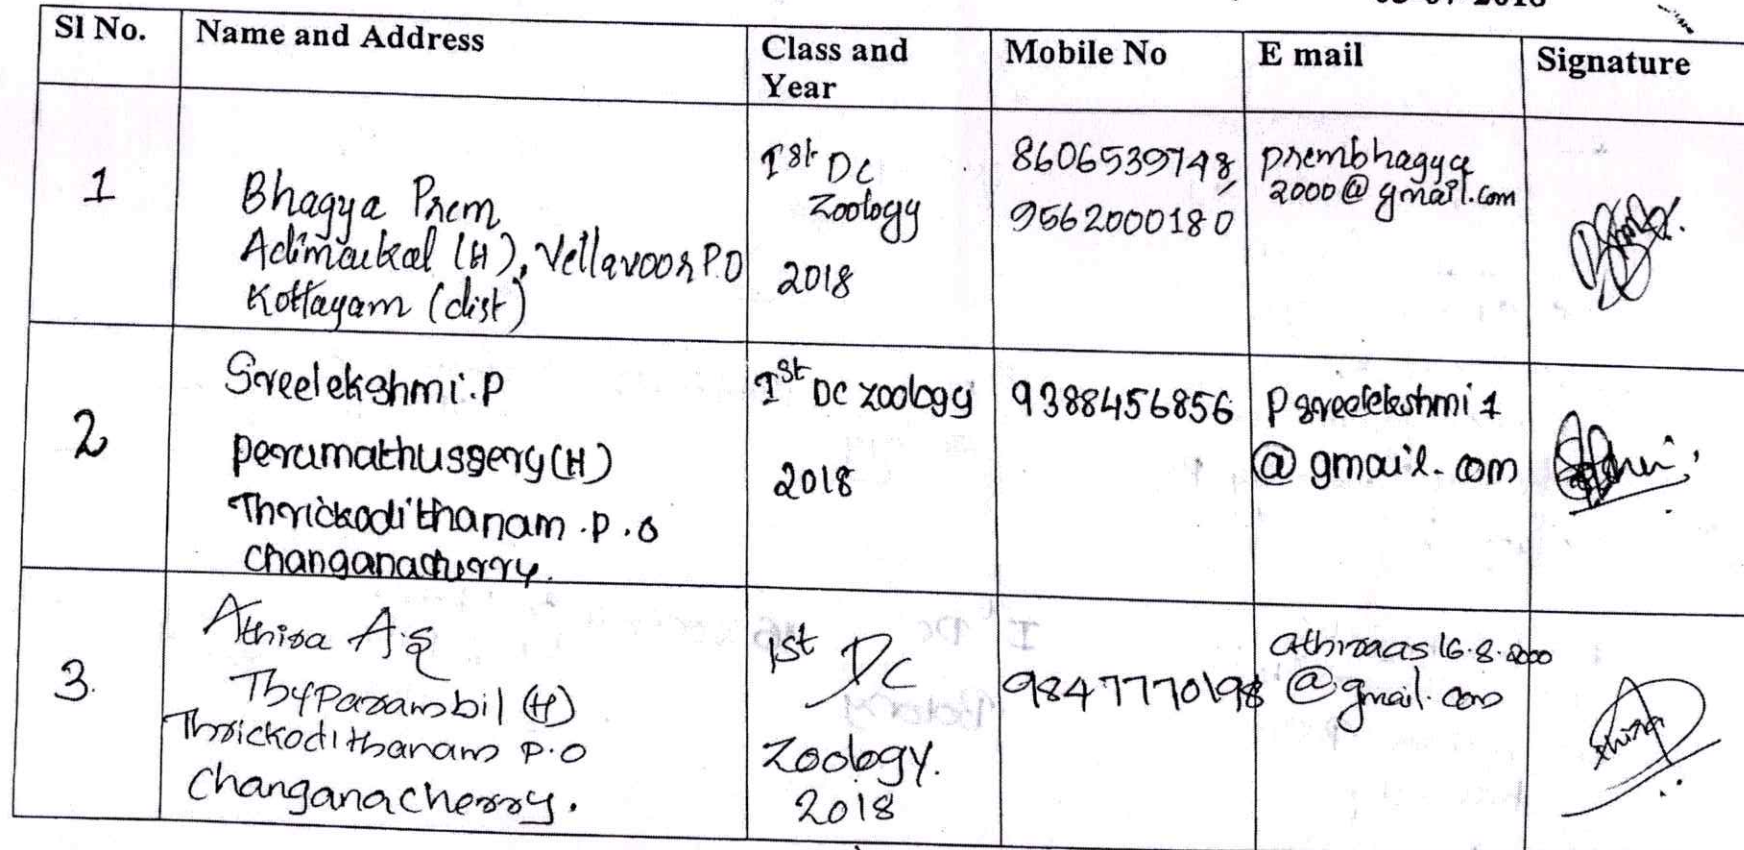 Sl No. Name and Address Class and Year Mobile No E mail Signature
1
Bhagya Prem
Adimackal (H), Vellavoor P.O
Kottayam (dist)
Ist DC
Zoology
2018
8606539748,
9562000180
prembhagya
2000@gmail.com
2
Sreelekshmi.P
perumathussery(H)
Thrickodithanam.P.O
Changanacherry.
Ist DC zoology
2018
9388456856
psreelekshmi1
@gmail.com
3.
Athira A.S
Thyparambil (H)
Thrickodithanam P.O
Changanacherry.
1st DC
Zoology.
2018
9847770198
athiraas16.8.2000
@gmail.com
Athira